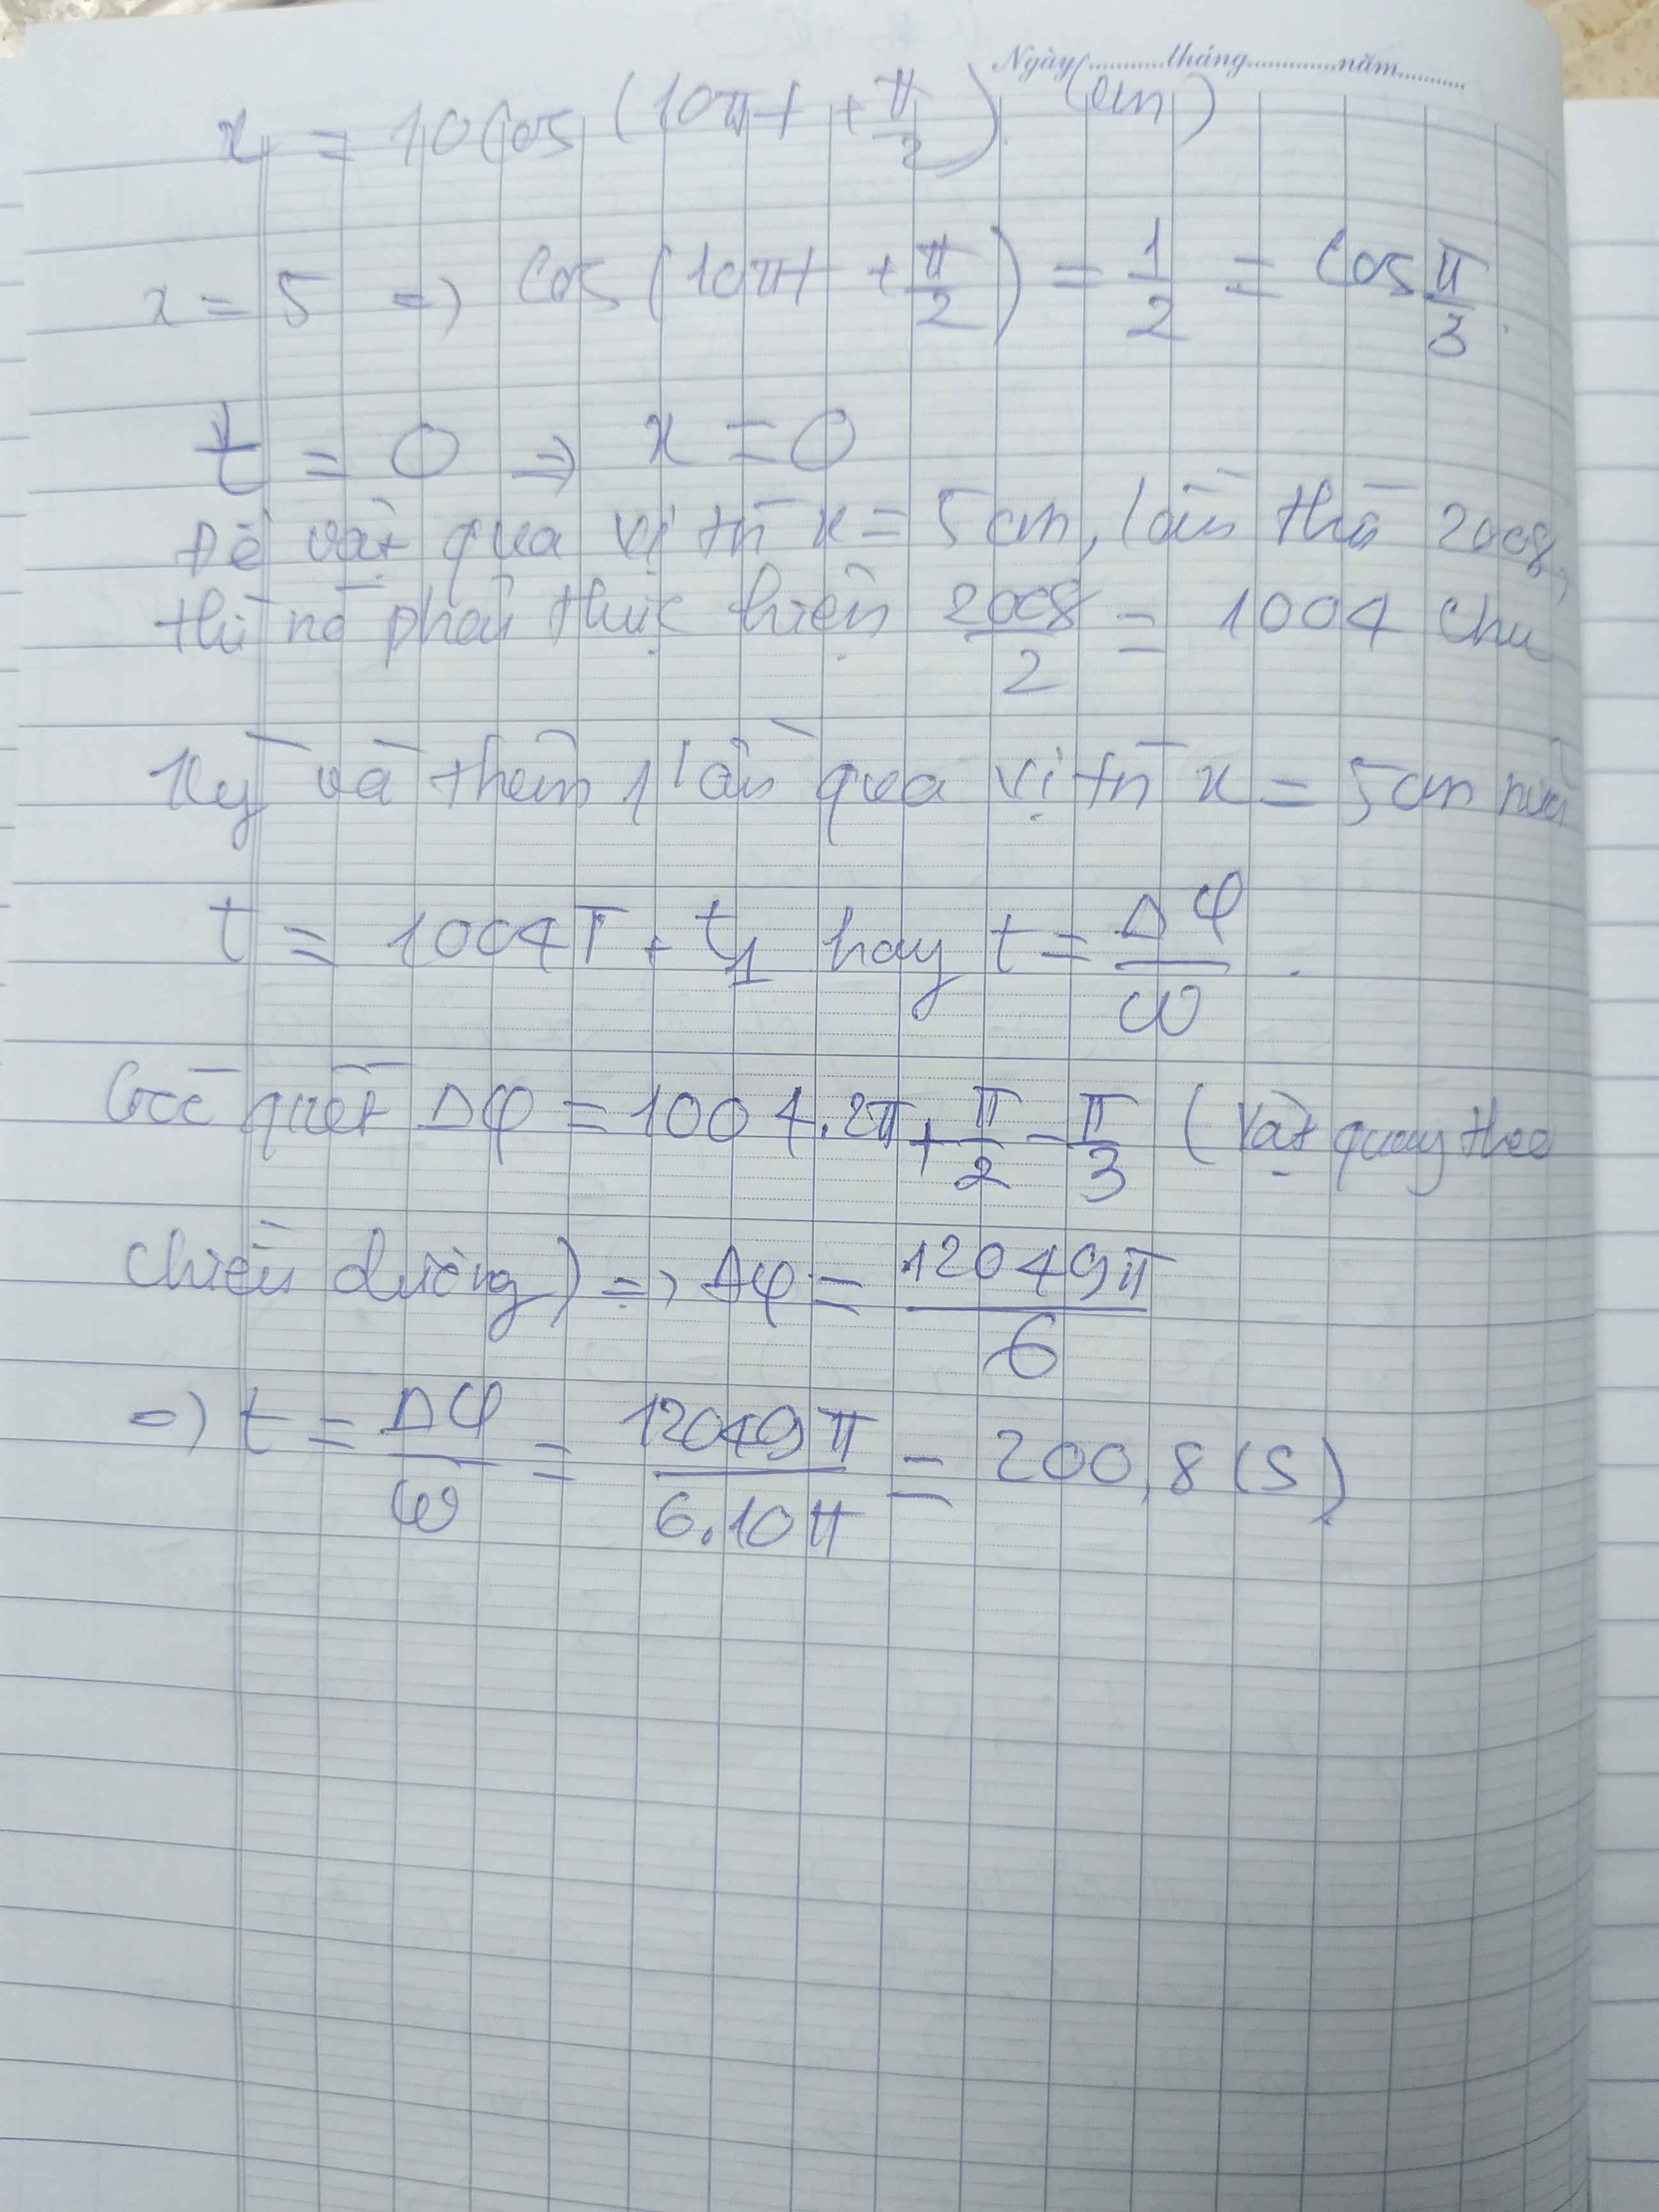 Ngày............tháng............năm..........
x = 10 cos (10πt + π/2) (cm)
x = 5 => cos (10πt + π/2) = 1/2 = cos π/3.
t = 0 => x = 0
Để vật qua vị trí x = 5cm, lần thứ 2008,
thì nó phải thực hiện 2008/2 = 1004 chu
kỳ và thêm 1 lần qua vị trí x = 5cm nữa
t = 1004T + t1 hay t = Δφ/ω.
Góc quét Δφ = 1004.2π + π/2 - π/3 (Vật quay theo
chiều dương) => Δφ = 12049π/6
=> t = Δφ/ω = 12049π/6.10π = 200,8 (s)